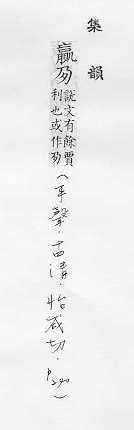 集韻
贏夃說文有餘賈
利也或作夃
(平聲．十四清．怡成切．P240)